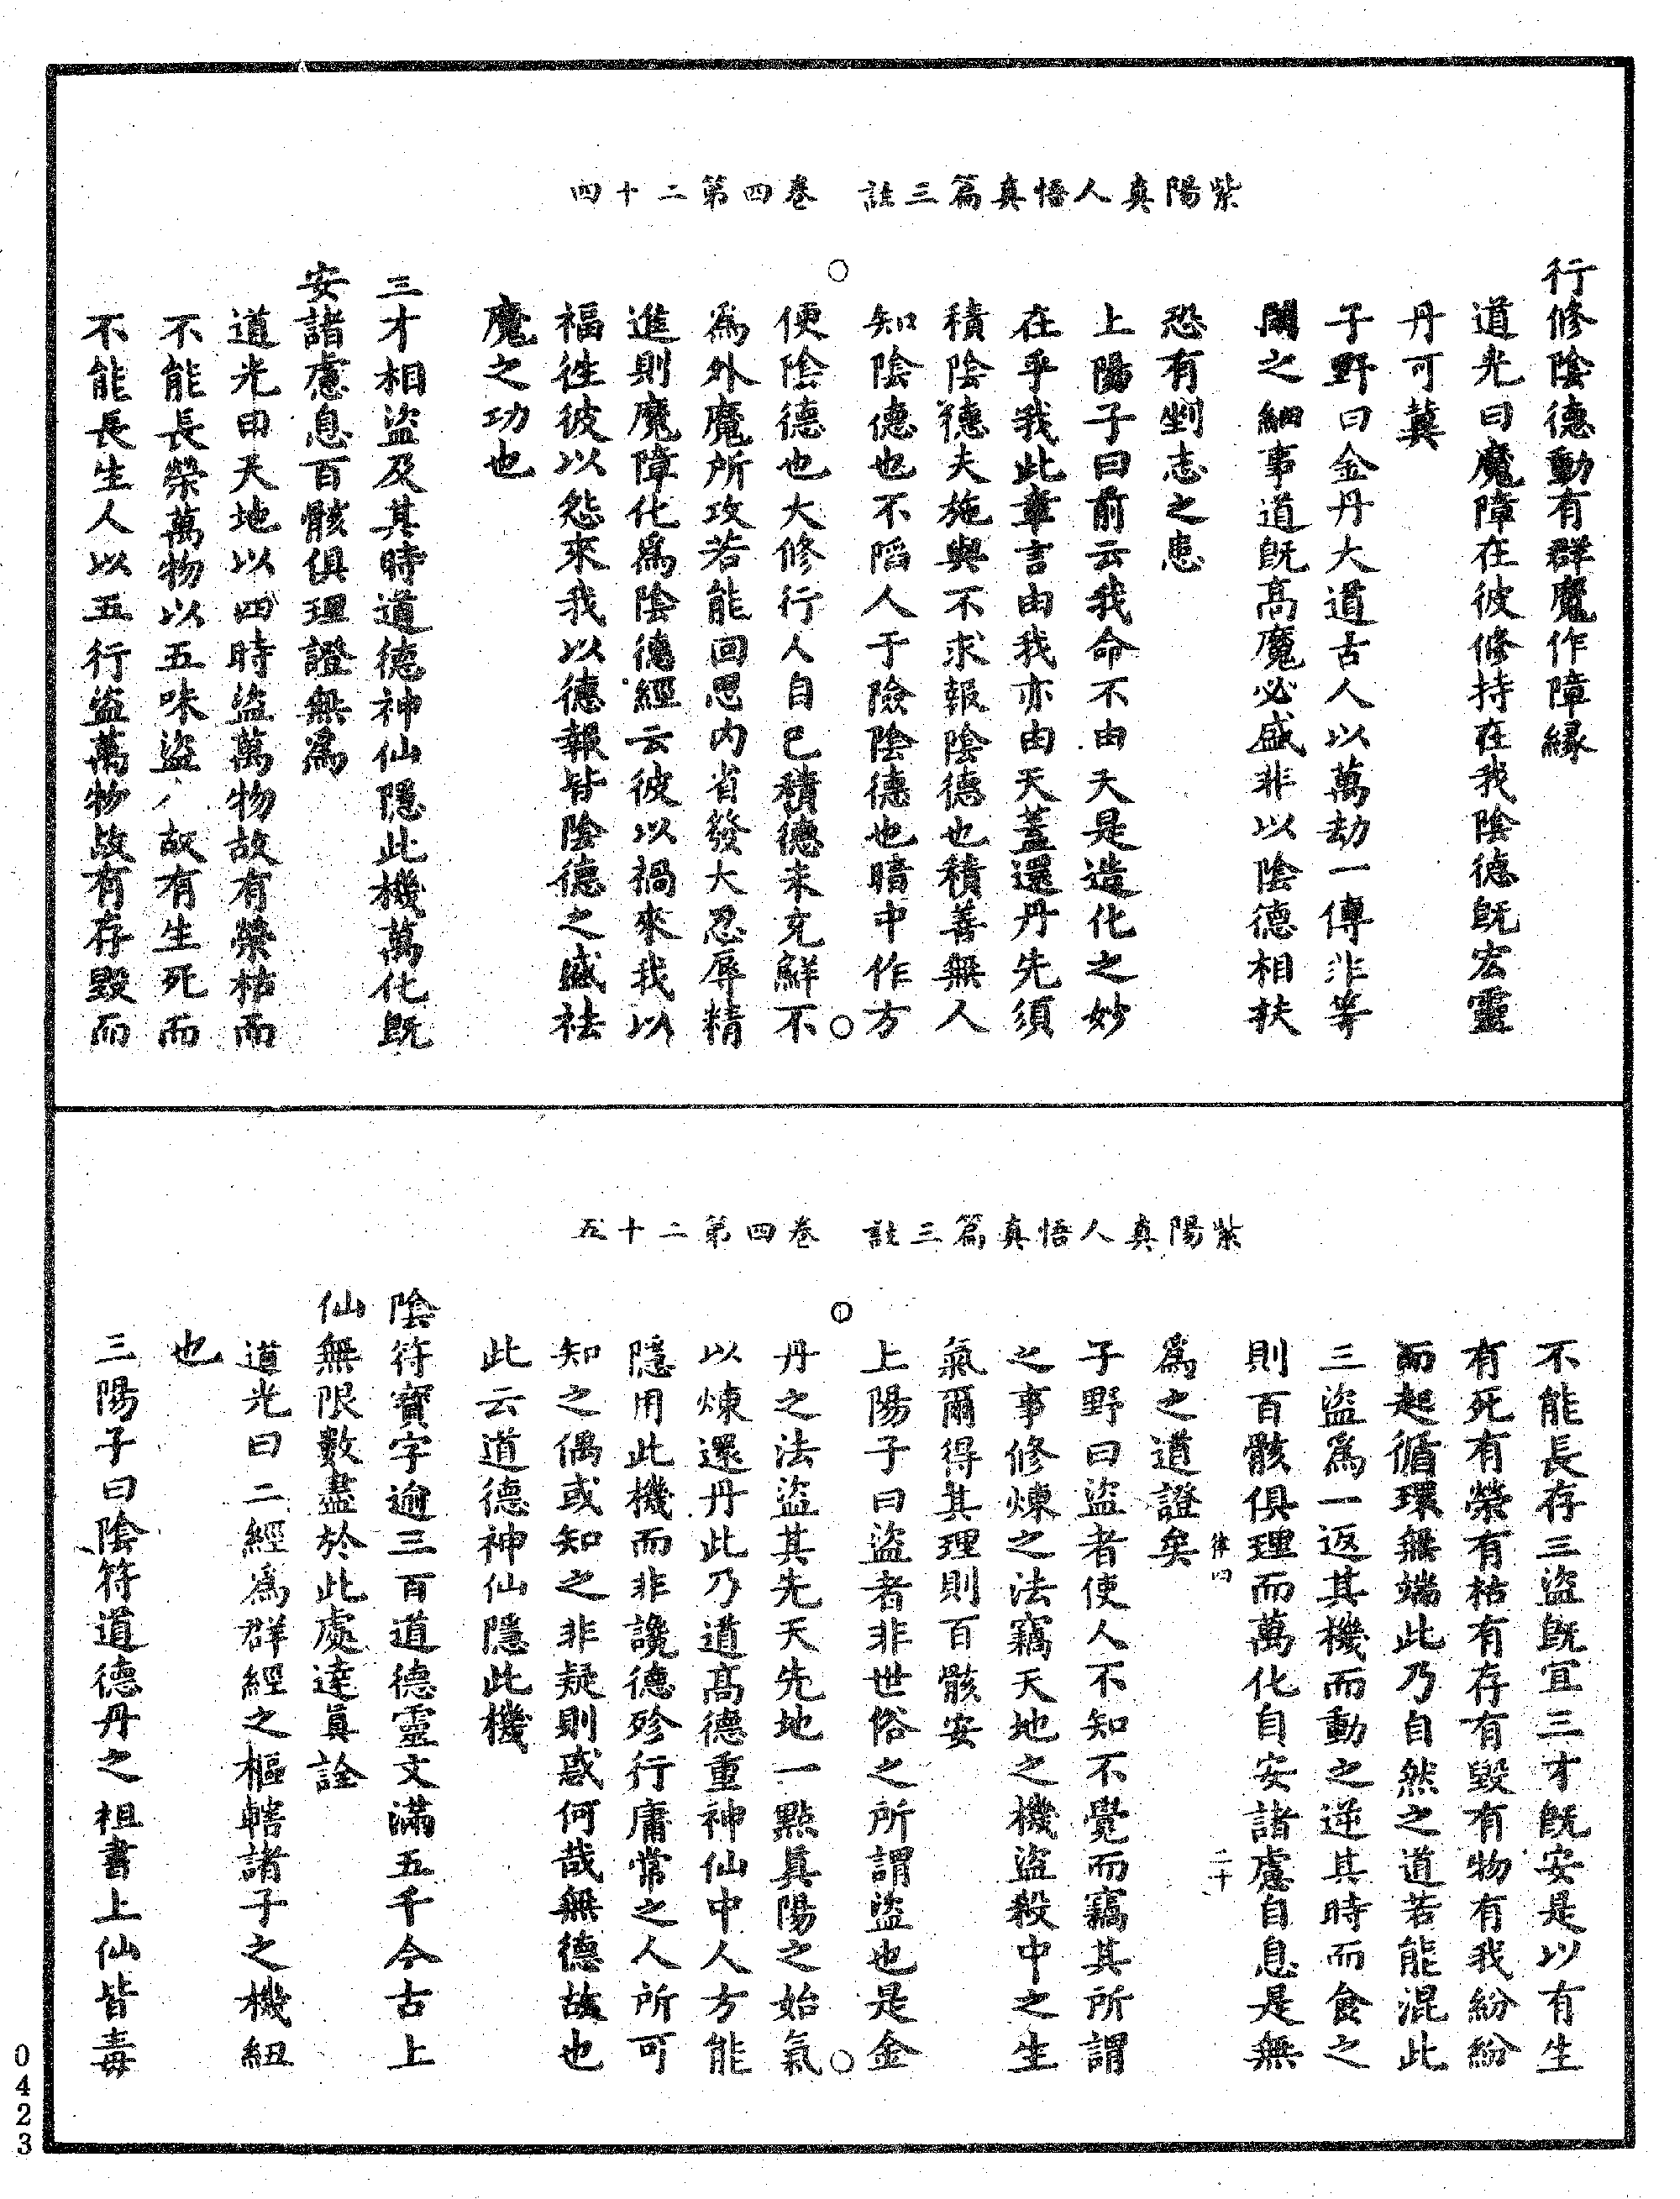 紫陽真人悟真篇三註　卷四第二十四
行修陰德動有群魔作障緣
道光曰魔障在彼修持在我陰德既宏靈
丹可冀
子野曰金丹大道古人以萬劫一傳非等
閑之細事道既高魔必盛非以陰德相扶
恐有剉志之患
上陽子曰前云我命不由天是造化之妙
在乎我此章言由我亦由天蓋還丹先須
積陰德夫施與不求報陰德也積善無人
知陰德也不陷人于險陰德也暗中作方
便陰德也大修行人自己積德未充鮮不
為外魔所攻若能回思內省發大忍辱精
進則魔障化為陰德經云彼以禍來我以
福往彼以怨來我以德報皆陰德之盛祛
魔之功也
三才相盜及其時道德神仙隱此機萬化既
安諸慮息百骸俱理證無為
道光曰天地以四時盜萬物故有榮枯而
不能長榮萬物以五味盜人故有生死而
不能長生人以五行盜萬物故有存毀而
紫陽真人悟真篇三註　卷四第二十五
不能長存三盜既宜三才既安是以有生
有死有榮有枯有存有毀有物有我紛紛
而起循環無端此乃自然之道若能混此
三盜為一返其機而動之逆其時而食之
則百骸俱理而萬化自安諸慮自息是無
律四　二十
為之道證矣
子野曰盜者使人不知不覺而竊其所謂
之事修煉之法竊天地之機盜殺中之生
氣爾得其理則百骸安
上陽子曰盜者非世俗之所謂盜也是金
丹之法盜其先天先地一點真陽之始氣
以煉還丹此乃道高德重神仙中人方能
隱用此機而非讒德殄行庸常之人所可
知之偶或知之非疑則惑何哉無德故也
此云道德神仙隱此機
陰符寶字逾三百道德靈文滿五千今古上
仙無限數盡於此處達真詮
道光曰二經為群經之樞轄諸子之機紐
也
三陽子曰陰符道德丹之祖書上仙皆毒
0423